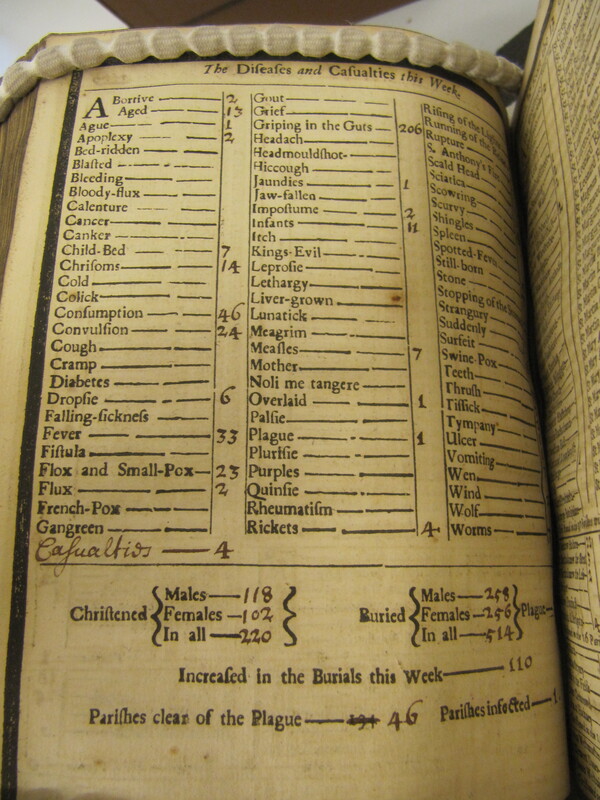 The Diſeaſes and Caſualties this Week.
ABortive — 2
Aged — 13
Ague — 1
Apoplexy — 2
Bed-ridden
Blaſted
Bleeding
Bloody-flux
Calenture
Cancer
Canker
Child-Bed — 7
Chriſoms — 14
Cold
Colick
Conſumption — 46
Convulſion — 24
Cough
Cramp
Diabetes
Dropſie — 6
Falling-ſickneſs
Fever — 33
Fiſtula
Flox and Small-Pox — 23
Flux — 2
French-Pox
Gangreen
Caſualtids — 4
Gout
Grief
Griping in the Guts — 206
Headach
Headmouldſhot-
Hiccough
Jaundies — 1
Jaw-fallen
Impoſtume — 2
Infants — 11
Itch
Kings-Evil
Leproſie
Lethargy
Liver-grown
Lunatick
Meagrim
Meaſles — 7
Mother
Noli me tangere
Overlaid — 1
Palſie
Plague — 1
Pluriſie
Purples
Quinſie
Rheumatiſm
Rickets — 4
Riſing of the
Running of the
Rupture
S. Anthony's
Scald Head
Sciatica
Scowring
Scurvy
Shingles
Spleen
Spotted-Fever
Still-born
Stone
Stopping of the
Strangury
Suddenly
Surfeit
Swine-Pox
Teeth
Thruſh
Tiſſick
Tympany
Ulcer
Vomiting
Wen
Wind
Wolf
Worms
Chriſtened { Males — 118
Females — 102
In all — 220 }
Buried { Males — 258
Females — 256
In all — 514 } Plague
Increaſed in the Burials this Week — 110
Pariſhes clear of the Plague — 46 Pariſhes infected — 1